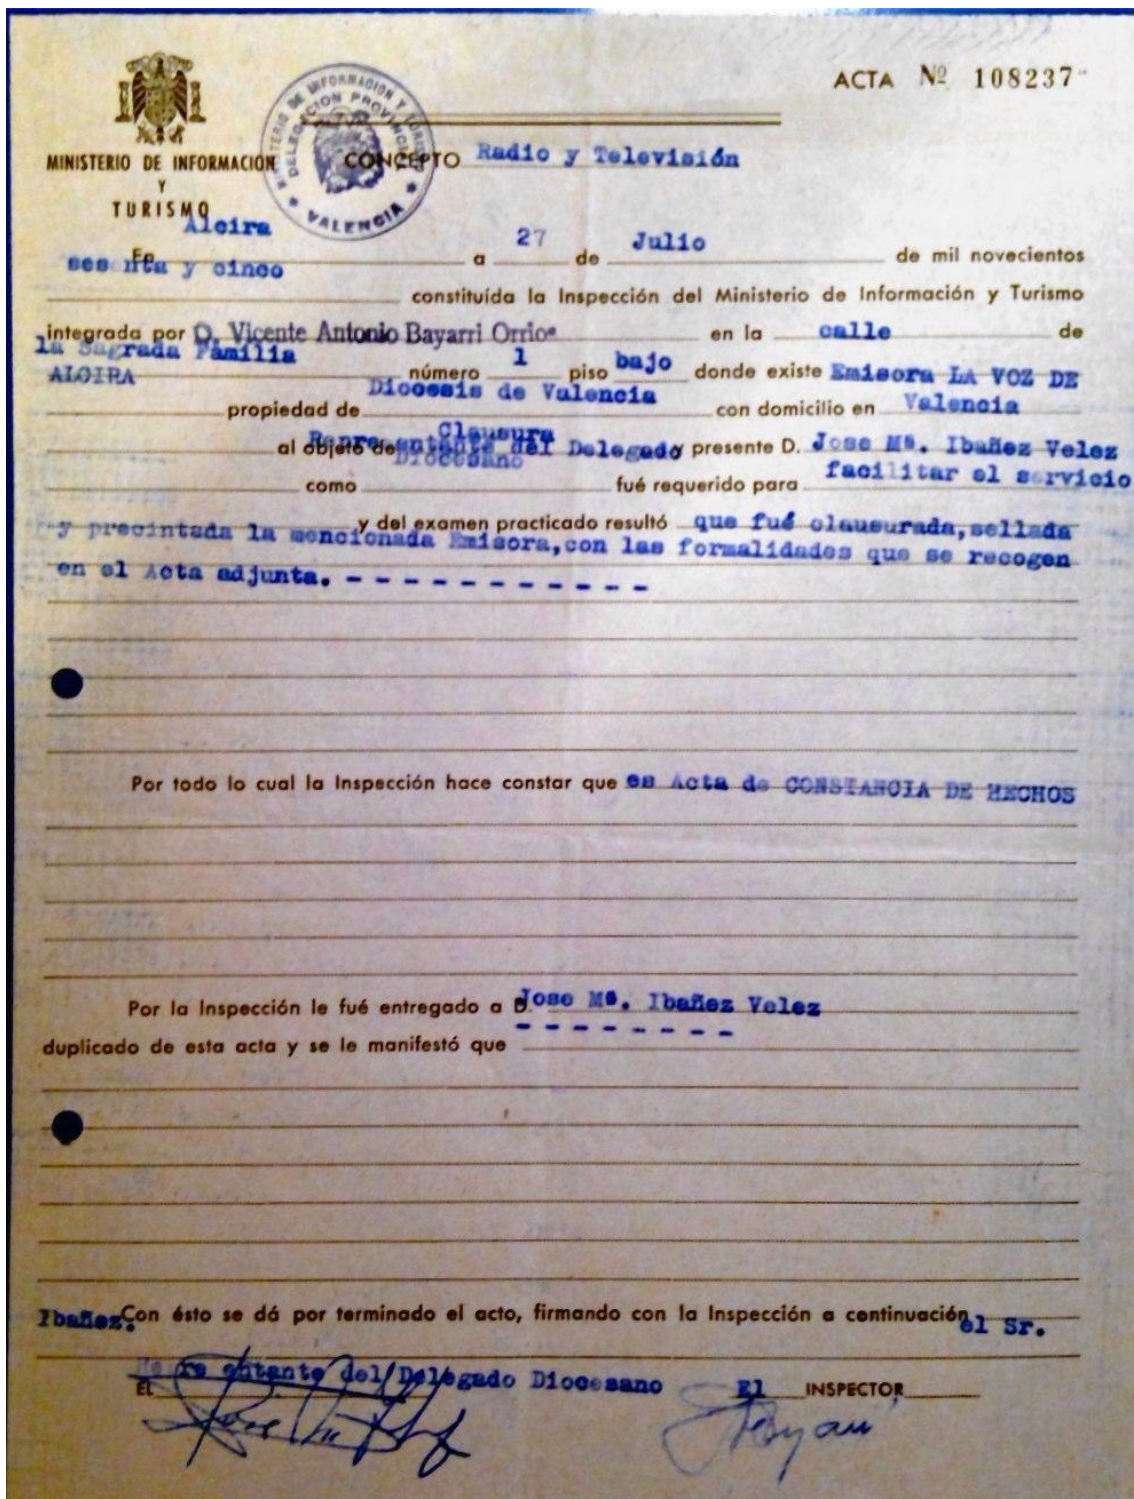 ACTA Nº 108237
MINISTERIO DE INFORMACION
Y
TURISMO
MINISTERIO DE INFORMACION Y TURISMO
DELEGACION PROVINCIAL
VALENCIA
CONCEPTO Radio y Televisión
En Alcira a 27 de Julio de mil novecientos
sesenta y cinco constituída la Inspección del Ministerio de Información y Turismo
integrada por D. Vicente Antonio Bayarri Orrios en la calle de
la Sagrada Familia número 1 piso bajo donde existe Emisora LA VOZ DE
ALCIRA propiedad de Diocesis de Valencia con domicilio en Valencia
al objeto de Clausura y presente D. Jose Mª. Ibañez Velez
como Representante del Delegado Diocesano fué requerido para facilitar el servicio
y del examen practicado resultó que fué clausurada, sellada
y precintada la mencionada Emisora, con las formalidades que se recogen
en el Acta adjunta. - - - - - - - - - - - -
Por todo lo cual la Inspección hace constar que es Acta de CONSTANCIA DE HECHOS
Por la Inspección le fué entregado a D. Jose Mª. Ibañez Velez
duplicado de esta acta y se le manifestó que - - - - - - - -
Con ésto se dá por terminado el acto, firmando con la Inspección a continuación el Sr.
Ibañez.
EL Representante del Delegado Diocesano El INSPECTOR